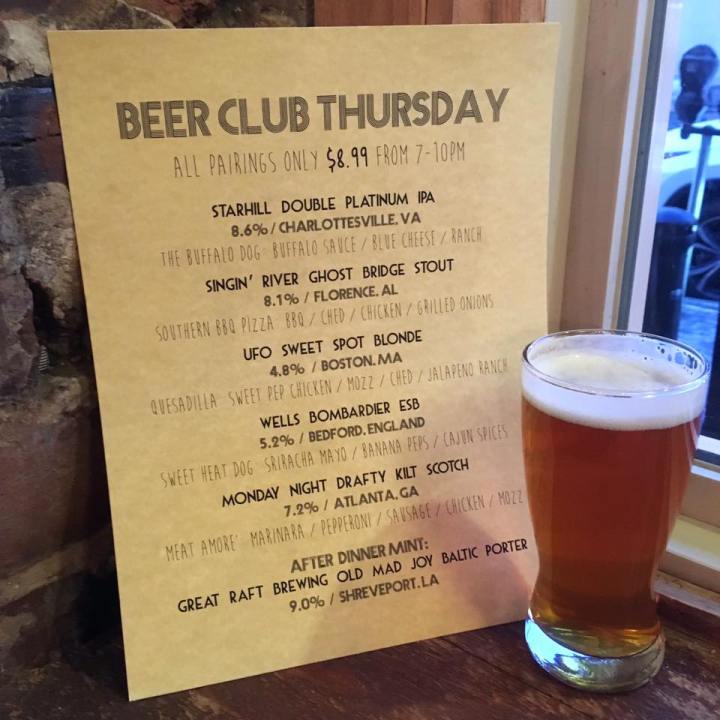 BEER CLUB THURSDAY
ALL PAIRINGS ONLY $8.99 FROM 7-10PM
STARHILL DOUBLE PLATINUM IPA
8.6% / CHARLOTTESVILLE, VA
THE BUFFALO DOG: BUFFALO SAUCE / BLUE CHEESE / RANCH
SINGIN' RIVER GHOST BRIDGE STOUT
8.1% / FLORENCE, AL
SOUTHERN BBQ PIZZA: BBQ / CHED / CHICKEN / GRILLED ONIONS
UFO SWEET SPOT BLONDE
4.8% / BOSTON, MA
QUESADILLA: SWEET PEP CHICKEN / MOZZ / CHED / JALAPENO RANCH
WELLS BOMBARDIER ESB
5.2% / BEDFORD, ENGLAND
SWEET HEAT DOG: SRIRACHA MAYO / BANANA PEPS / CAJUN SPICES
MONDAY NIGHT DRAFTY KILT SCOTCH
7.2% / ATLANTA, GA
MEAT AMORE': MARINARA / PEPPERONI / SAUSAGE / CHICKEN / MOZZ
AFTER DINNER MINT:
GREAT RAFT BREWING OLD MAD JOY BALTIC PORTER
9.0% / SHREVEPORT, LA